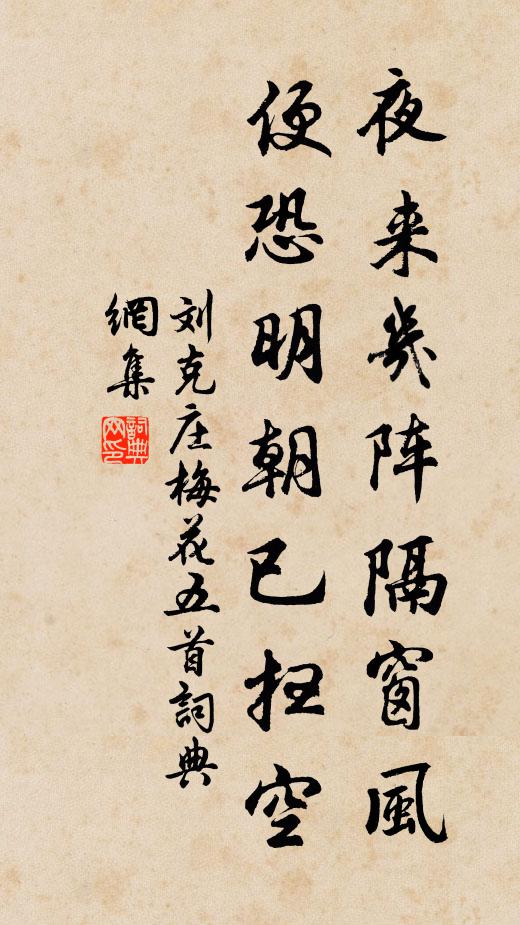 夜来幾阵隔窗風
便恐明朝已扫空
刘克庄梅花五首詞典
網集
詞典
网印